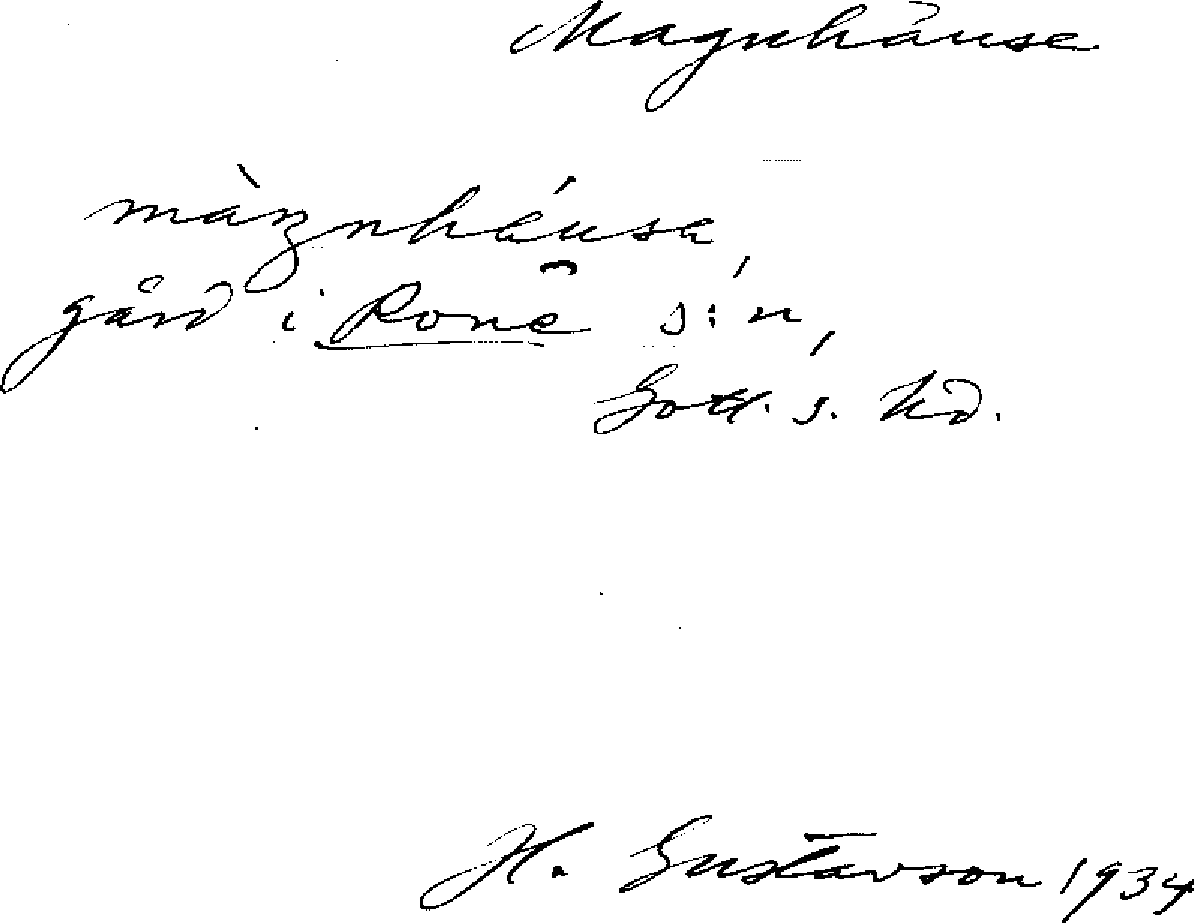 Magnhäuse
màŋnháusa,
gård i Rone s:n,
Gotl. s. hd.
H. Gustavson 1934